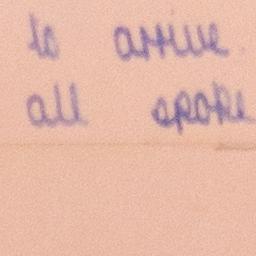 to arrive.
all spoke